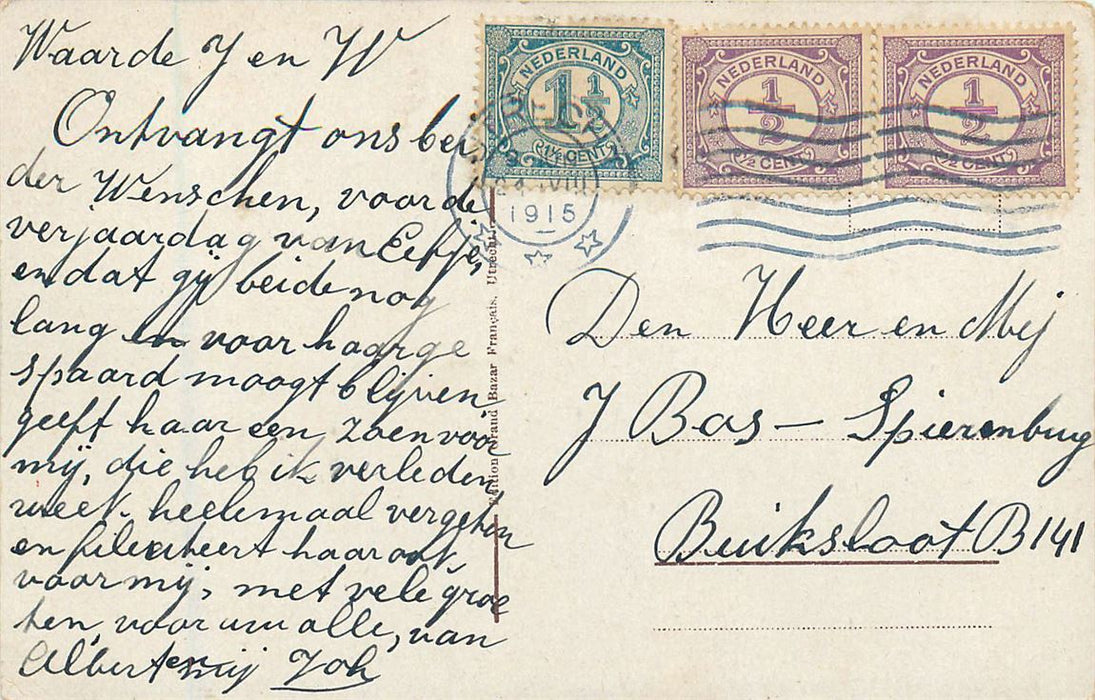 Waarde J en W
Ontvangt ons bei
der Wenschen, voor de
verjaardag van Eefje,
en dat gij beide nog
lang en voor haar ge
spaard moogt blijven
geeft haar een zoen voor
mij, die heb ik verleden
week heelemaal vergeten
en feliciteert haar ook
voor mij, met vele groe
ten, voor uw alle, van
Albert en mij Joh
NEDERLAND
1½
1½ CENT
NEDERLAND
½
½ CENT
NEDERLAND
½
½ CENT
VIII
1915
Edition Grand Bazar Français, Utrecht
Den Heer en Mej
J Bas – Spierenburg
Buiksloot B141